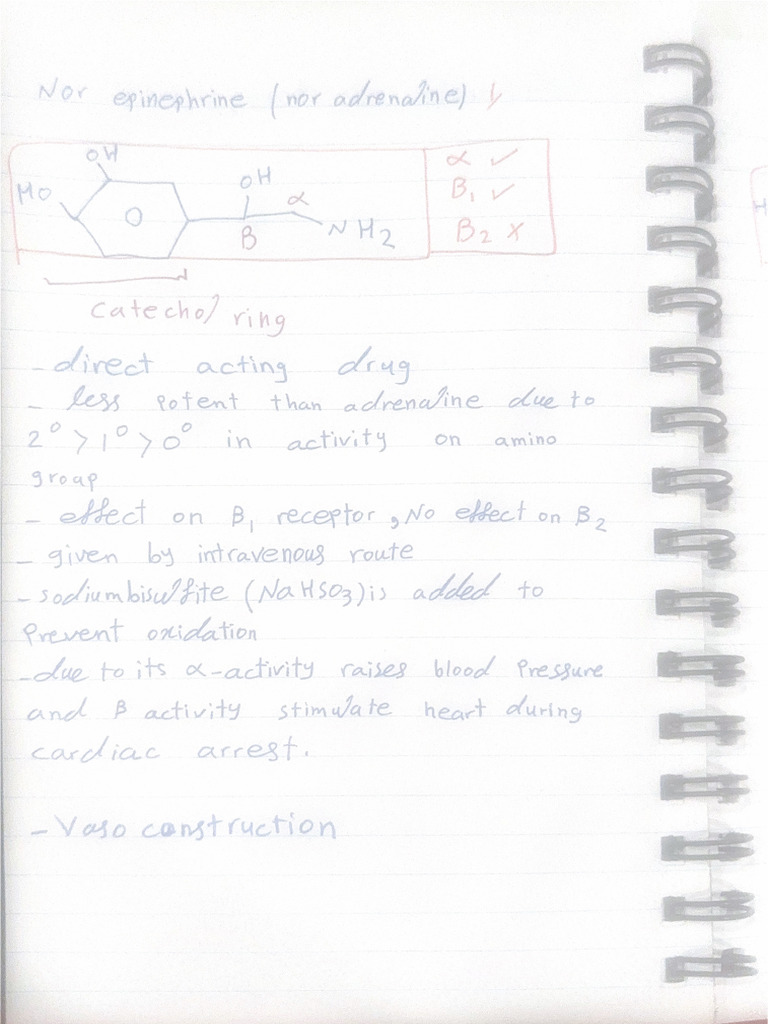 Nor epinephrine (nor adrenaline)
OH
HO
OH
α
B
NH2
α ✓
B1 ✓
B2 ✗
Catechol ring
- direct acting drug
- less potent than adrenaline due to
2° > 1° > 0° in activity on amino
group
- effect on B1 receptor, No effect on B2
- given by intravenous route
- sodium bisulfite (NaHSO3) is added to
Prevent oxidation
- due to its α-activity raises blood Pressure
and β activity stimulate heart during
cardiac arrest.
- Vaso construction